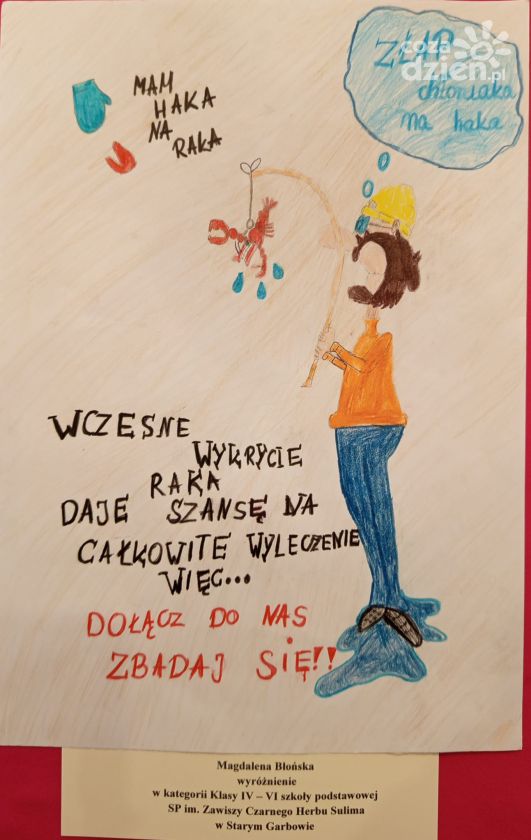 MAM
HAKA
NA
RAKA
ZŁAP
chłoniaka
na haka
coza
dzień.pl
WCZESNE
WYKRYCIE
RAKA
DAJE SZANSĘ NA
CAŁKOWITE WYLECZENIE
WIĘC...
DOŁĄCZ DO NAS
ZBADAJ SIĘ!!
Magdalena Błońska
wyróżnienie
w kategorii Klasy IV – VI szkoły podstawowej
SP im. Zawiszy Czarnego Herbu Sulima
w Starym Garbowie